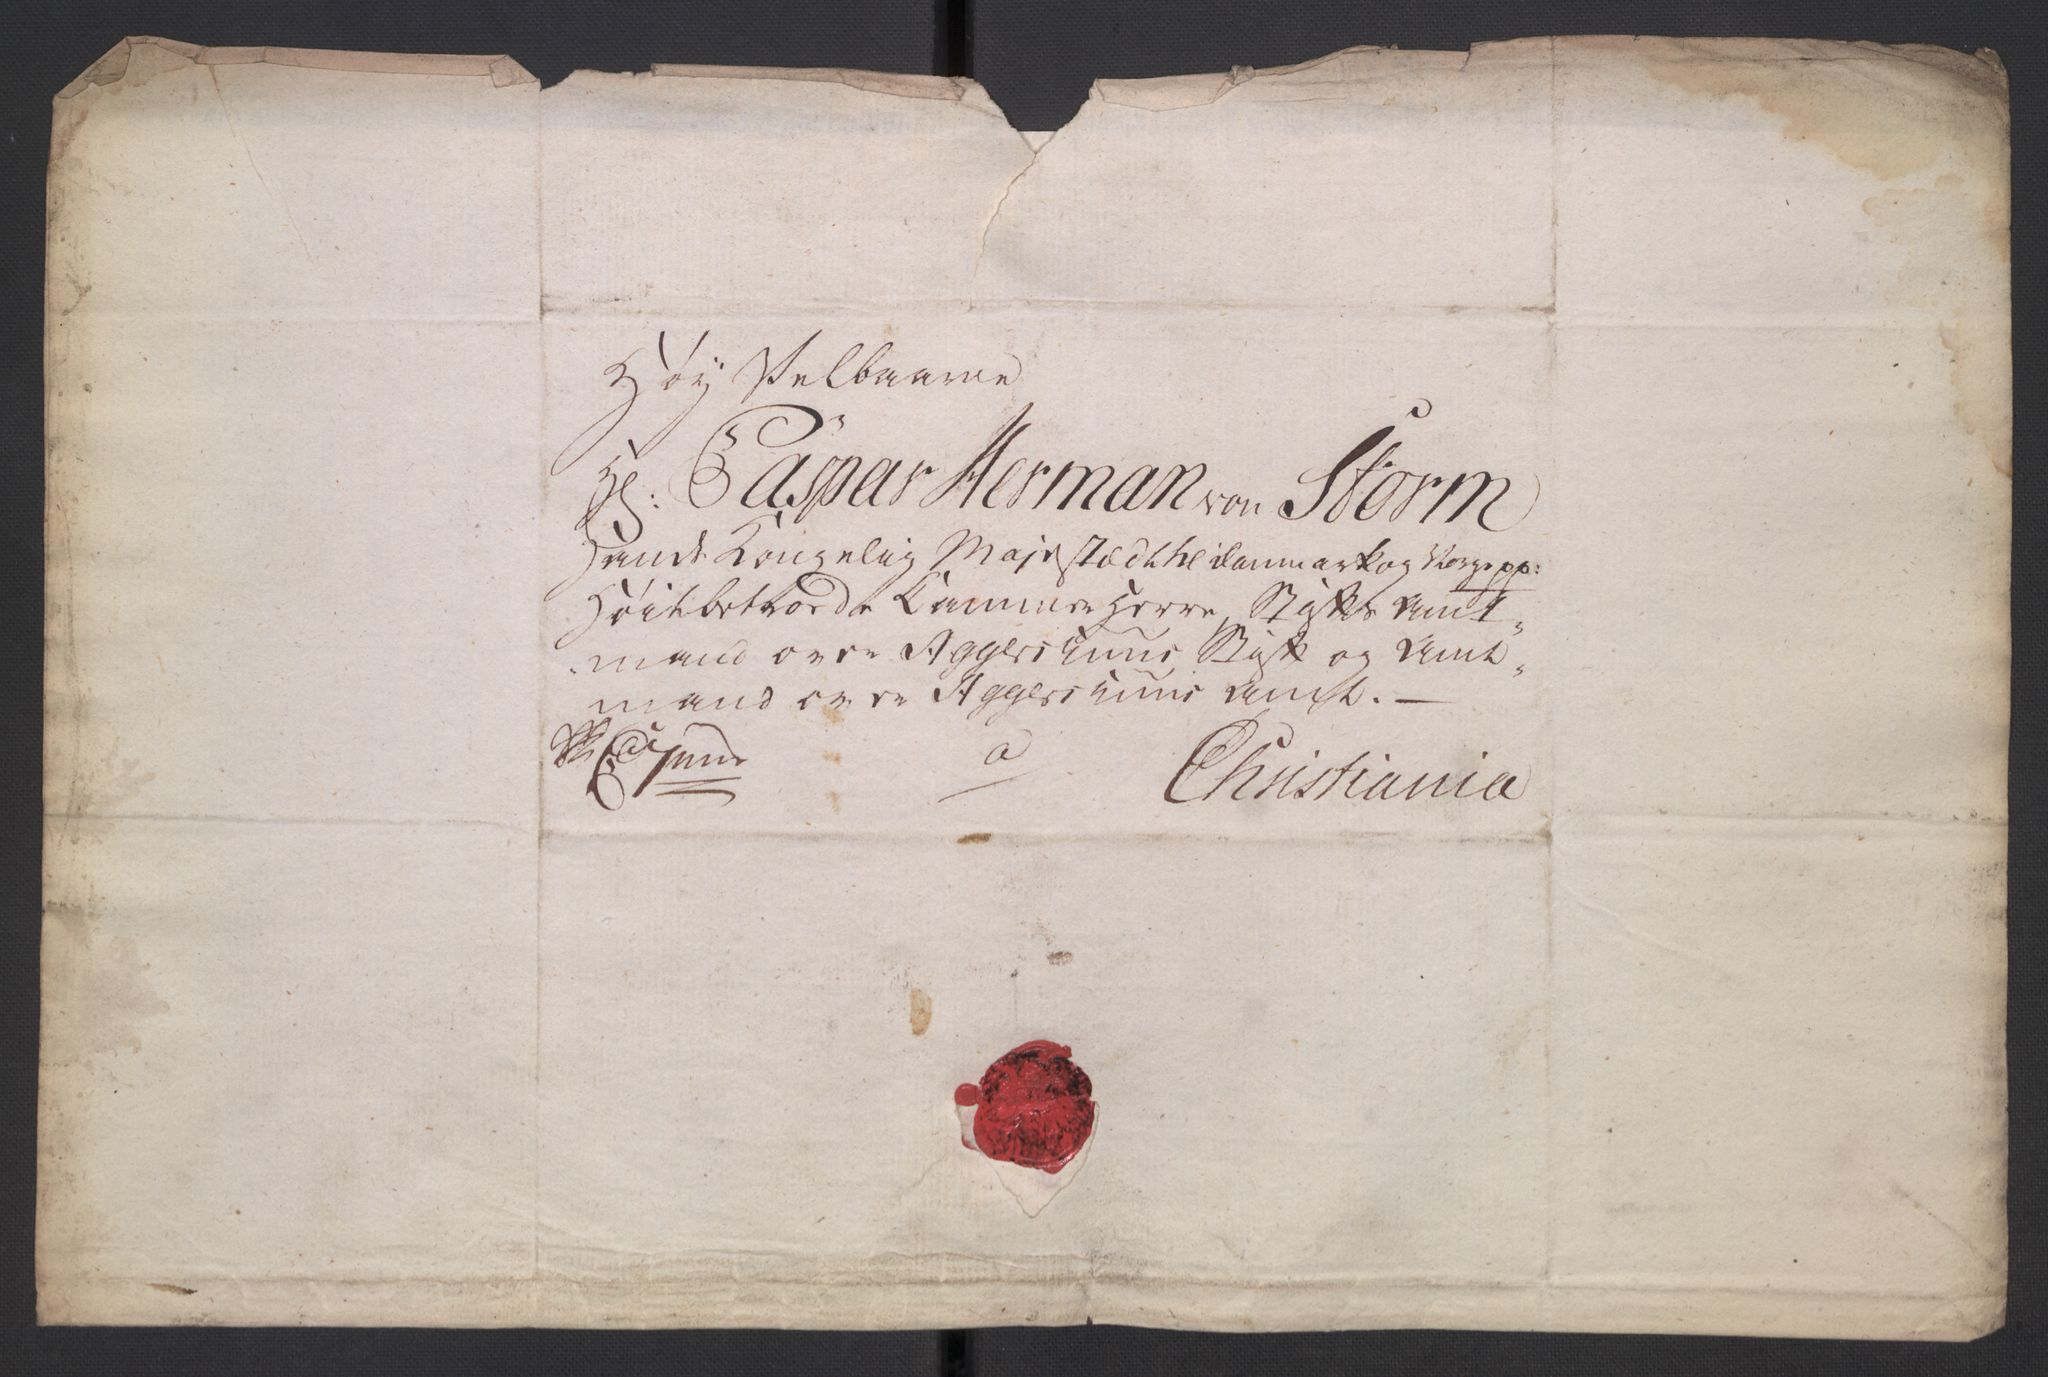 Høy Velbaarne
Hr: Caspar Herman von Storm
Hands Kongelig Majestædt til Danmark og Norge pp:
Høitbetroede Kammer Herre, Stifts Amt-
mand over Aggershuus Stift og Amt-
mand over Aggershuus Amt. —
a Christiania